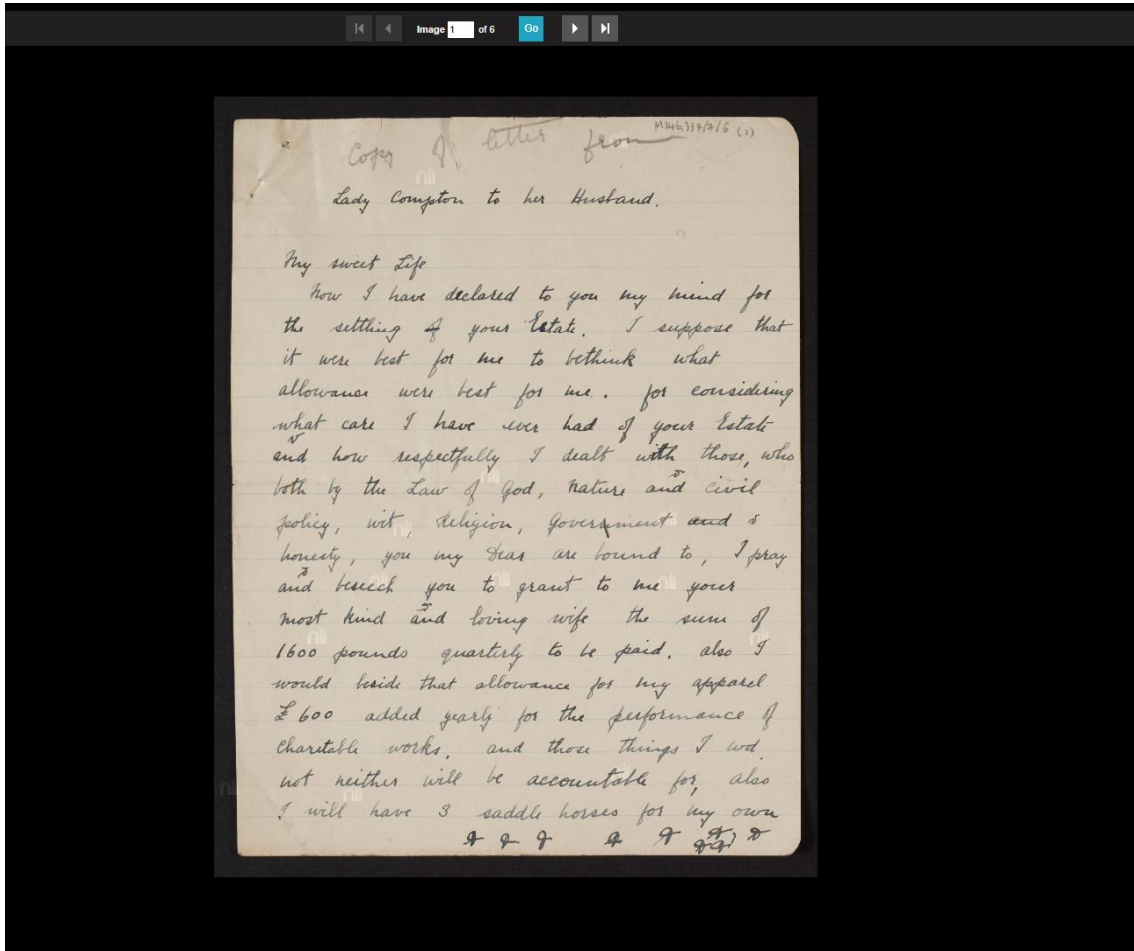 Image 1 of 6 Go
Copy of letter from
Lady Compton to her Husband.
My sweet Life
Now I have declared to you my mind for
the settling of your Estate. I suppose that
it were best for me to bethink what
allowance were best for me. for considering
what care I have ever had of your Estate
and how respectfully I dealt with those, who
both by the Law of God, nature and civil
policy, wit, Religion, Government and
honesty, you my Dear are bound to, I pray
and beseech you to grant to me your
most kind and loving wife the sum of
1600 pounds quarterly to be paid. also I
would beside that allowance for my apparel
£600 added yearly for the performance of
Charitable works, and those things I wd
not neither will be accountable for, also
I will have 3 saddle horses for my own